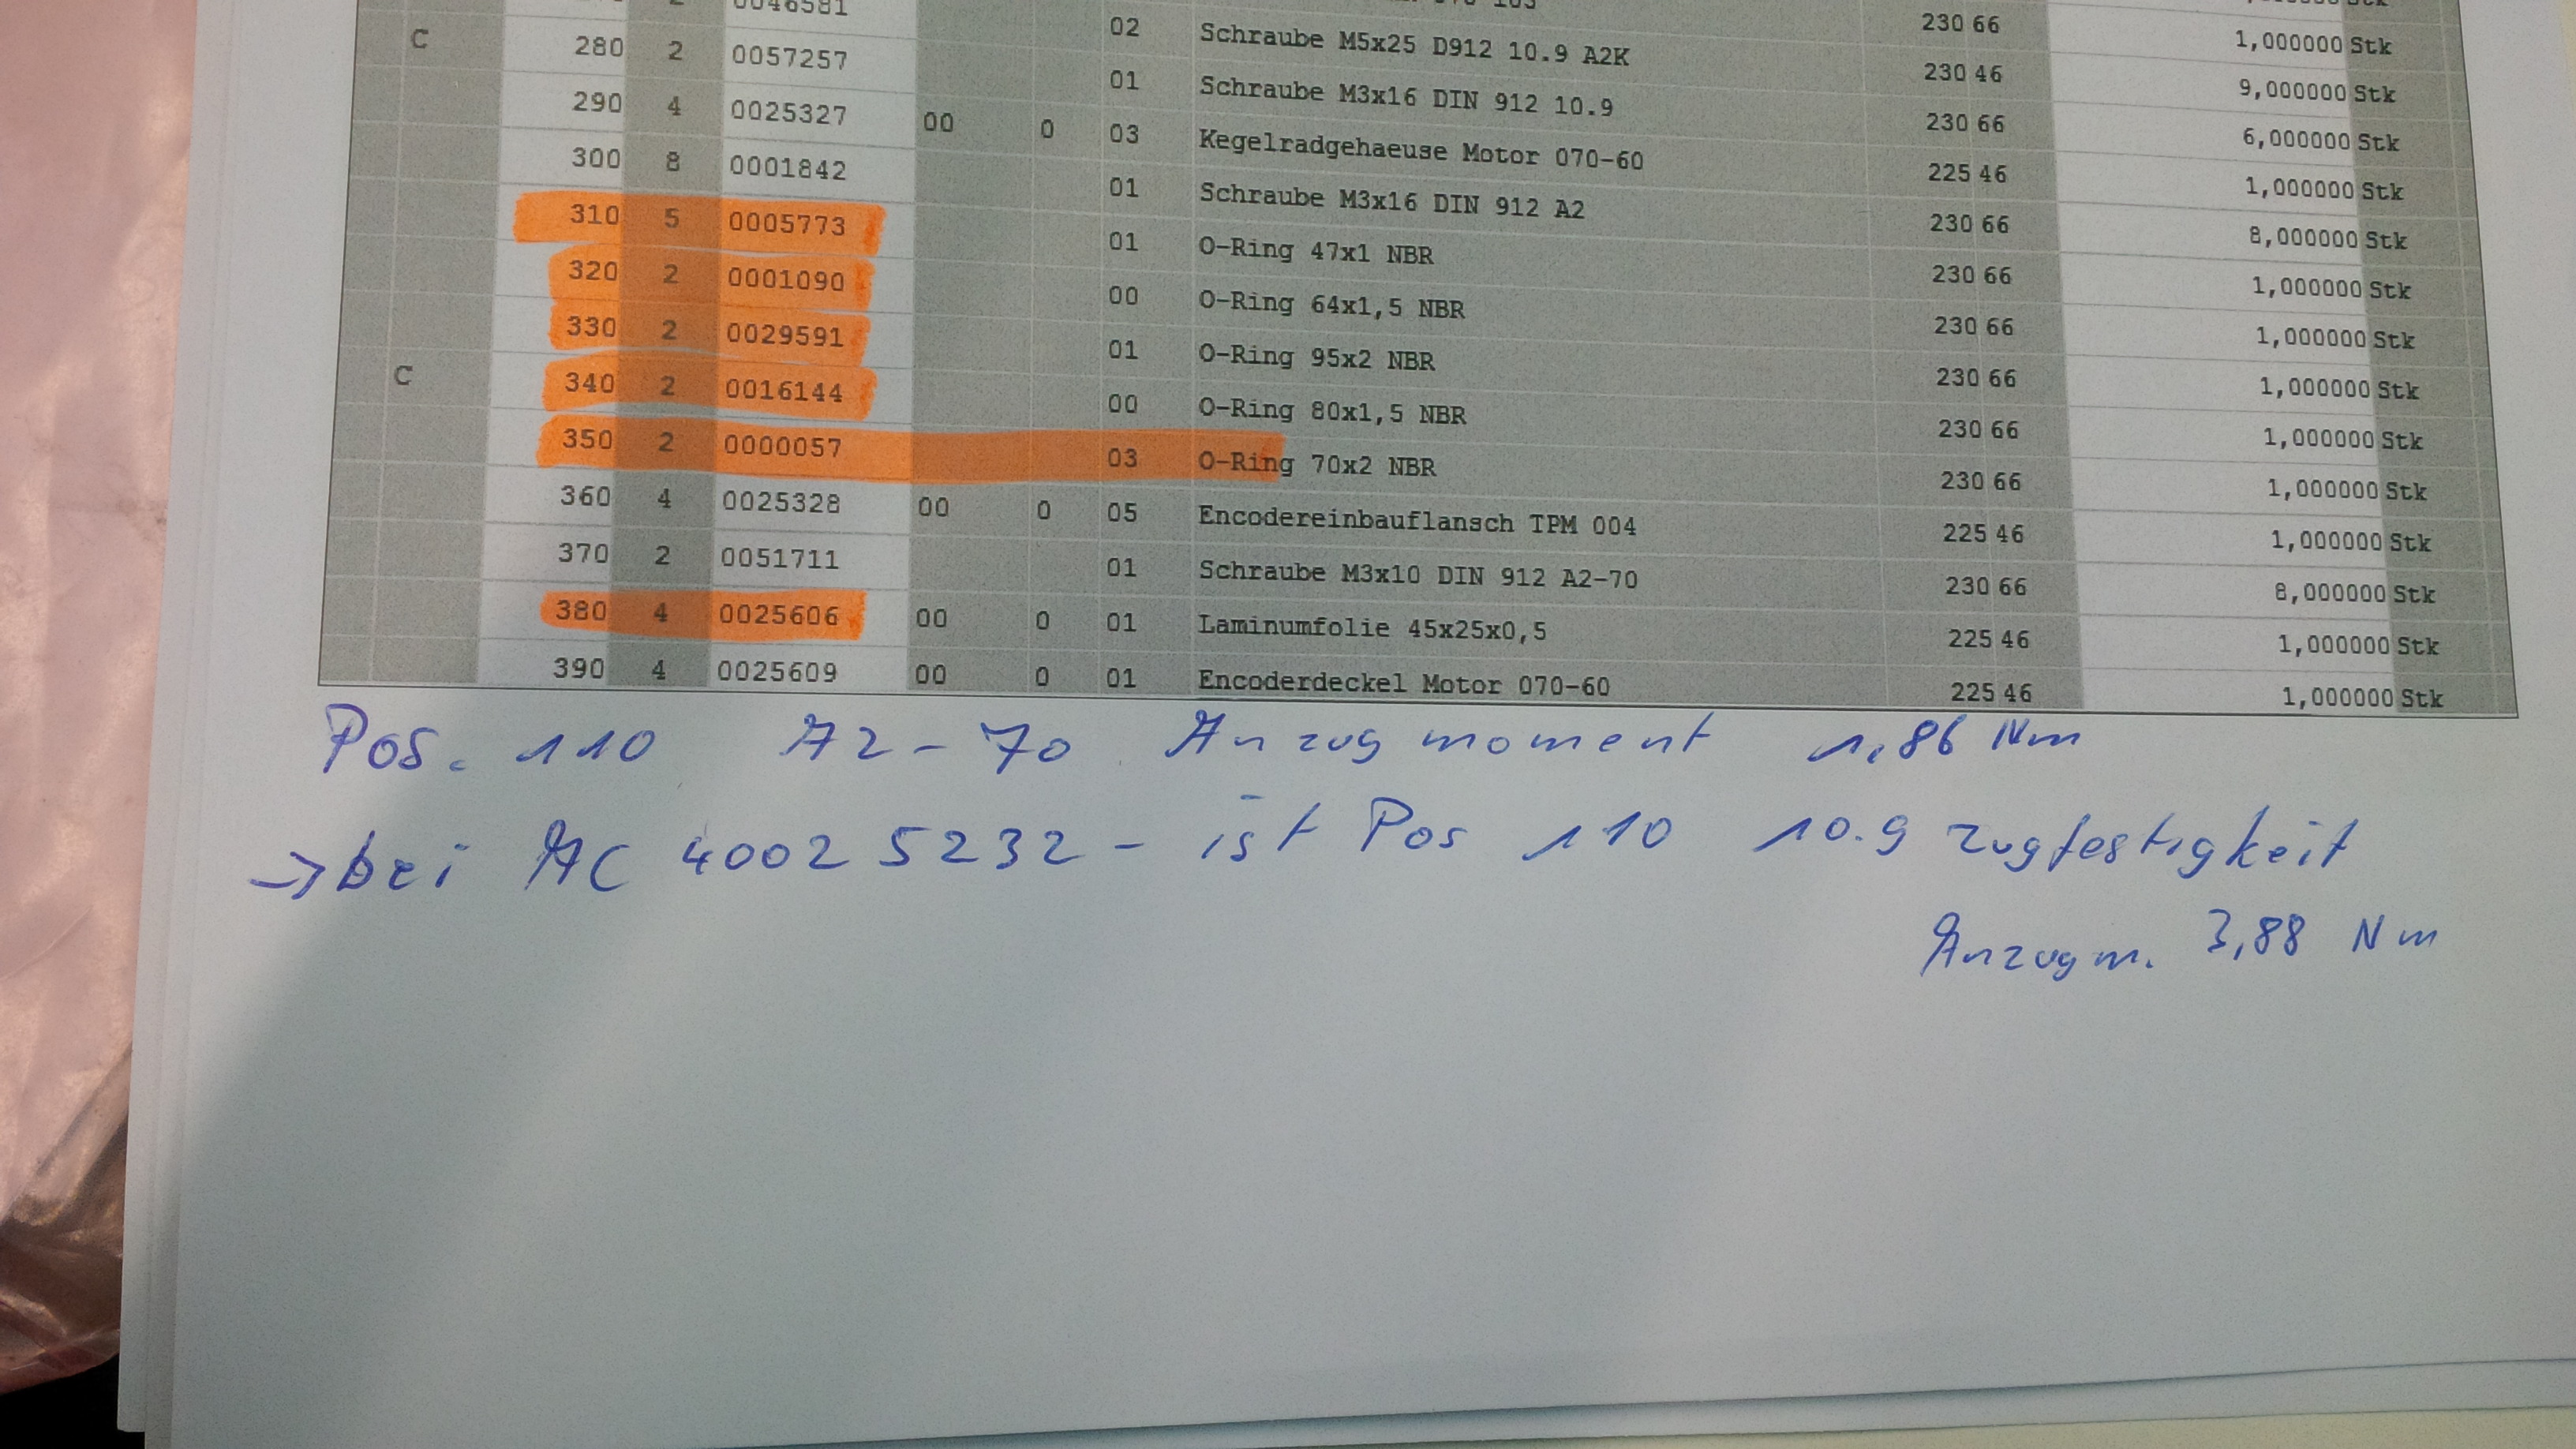 0046581 02 Schraube M5x25 D912 10.9 A2K 230 46 9,000000 Stk
C 280 2 0057257 01 Schraube M3x16 DIN 912 10.9 230 66 6,000000 Stk
290 4 0025327 00 0 03 Kegelradgehaeuse Motor 070-60 225 46 1,000000 Stk
300 8 0001842 01 Schraube M3x16 DIN 912 A2 230 66 8,000000 Stk
310 5 0005773 01 O-Ring 47x1 NBR 230 66 1,000000 Stk
320 2 0001090 00 O-Ring 64x1,5 NBR 230 66 1,000000 Stk
330 2 0029591 01 O-Ring 95x2 NBR 230 66 1,000000 Stk
C 340 2 0016144 00 O-Ring 80x1,5 NBR 230 66 1,000000 Stk
350 2 0000057 03 O-Ring 70x2 NBR 230 66 1,000000 Stk
360 4 0025328 00 0 05 Encodereinbauflansch TPM 004 225 46 1,000000 Stk
370 2 0051711 01 Schraube M3x10 DIN 912 A2-70 230 66 8,000000 Stk
380 4 0025606 00 0 01 Laminumfolie 45x25x0,5 225 46 1,000000 Stk
390 4 0025609 00 0 01 Encoderdeckel Motor 070-60 225 46 1,000000 Stk
Pos. 110 A2-70 Anzugmoment 1,86 Nm
→ bei AC 40025232 - ist Pos 110 10.9 Zugfestigkeit
Anzugm. 3,88 Nm